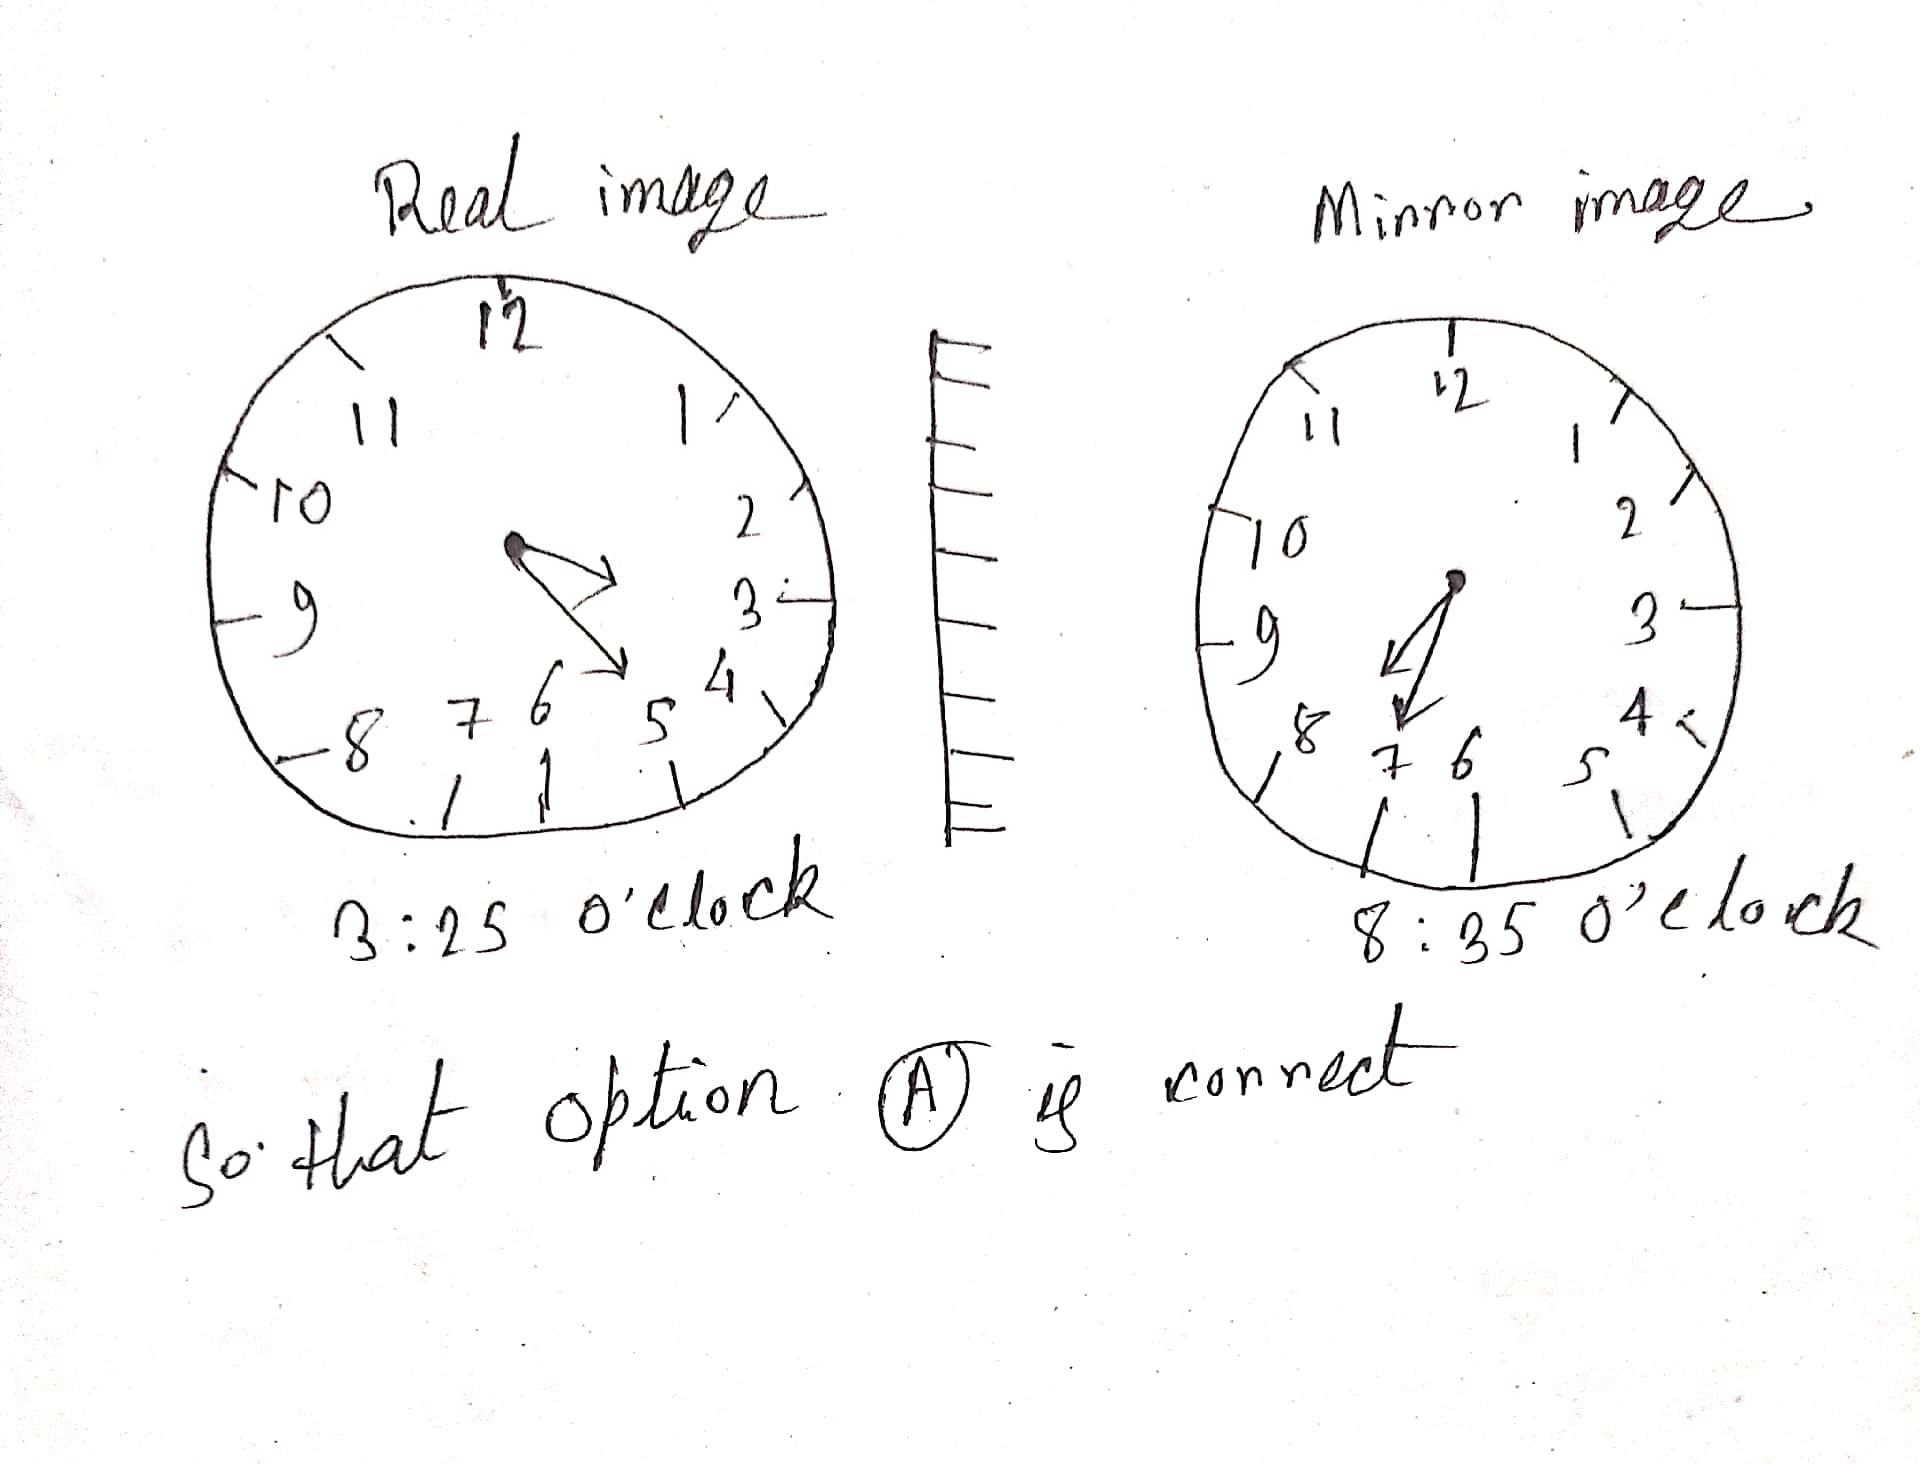 Real image
Mirror image
12
11
1
10
2
9
3
8
7
6
5
4
12
11
1
10
2
9
3
8
7
6
5
4
3:25 o'clock
8:35 o'clock
So that option A is correct